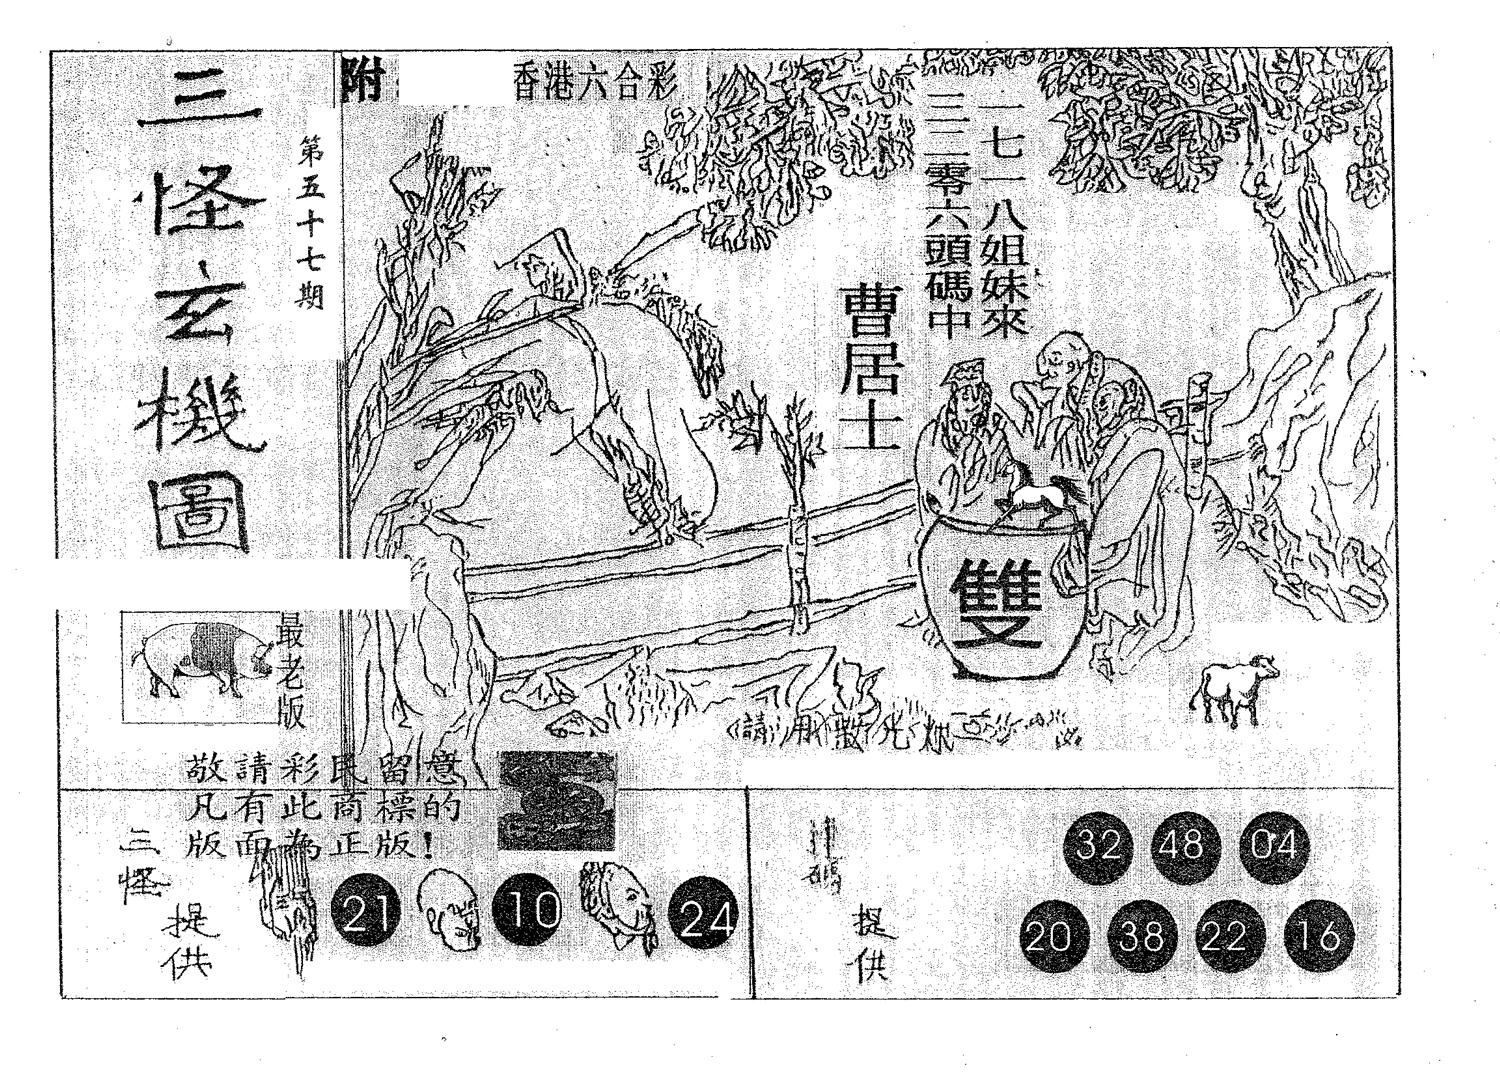 三怪玄機圖
第五十七期
附
香港六合彩
一七一八姐妹來
三二零六頭碼中
曹居士
雙
最老版
請用散光
敬請彩民留意
凡有此商標的
版面為正版!
三怪
提供
21
10
24
提供
32 48 04
20 38 22 16